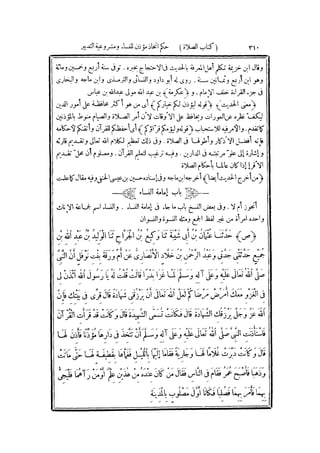 ٣١٠ (كتاب الصلاة) حكم اتخاذ مؤذن للنساء ومشروعية التدبير
وقال ابن خزيمة تكلم أهل المعرفة بالحديث فى الاحتجاج بخبره. توفى سنة أربع وخمسين ومائة
وهو ابن أربع وثمانين سنة. روى له أبو داود والنسائى والترمذى وابن ماجه والبخارى
فى جزء القراءة خلف الإمام. و﴿عكرمة﴾ بن عبد الله مولى عبد الله بن عباس
﴿معنى الحديث﴾ ﴿قوله ليؤذن لكم خياركم﴾ أى من هو أكثر محافظة على أمور الدين
ليكف نظره عن العورات ويحافظ على الأوقات لأن أمر الصلاة والصيام منوط بالمؤذنين
كما تقدم. والأمر فيه للاستحباب ﴿قوله وليؤمكم قراؤكم﴾ أى أحفظكم للقرآن وأتقنكم لأحكامه
فإنه أفضل الأذكار وأطولها فى الصلاة. وفى ذلك تعظيم لكلام الله تعالى وتقديم قارئه
وإشارة إلى علو مرتبته فى الدارين. وفيه ترغيب لتعلم القرآن. ومعلوم أن محل تقديم
الأقرإ إذا كان عالما بأحكام الصلاة
﴿من أخرج الحديث أيضا﴾ أخرجه ابن ماجه وفى إسناده حسين بن عيسى الحنفى وفيه مقال كما علمت
باب إمامة النساء
أتجوز أم لا. وفى بعض النسخ باب ما جاء فى إمامة النساء. والنساء اسم لجماعة الإناث
واحدته امرأة من غير لفظ الجمع ومثله النسوة والنسوان
﴿ص﴾ حَدَّثَنَا عُثْمَانُ بْنُ أَبِى شَيْبَةَ ثَنَا وَكِيعُ بْنُ الْجَرَّاحِ ثَنَا الْوَلِيدُ بْنُ عَبْدِ اللهِ بْنِ
جُمَيْعٍ حَدَّثَتْنِى جَدَّتِى وَعَبْدُ الرَّحْمَنِ بْنُ خَلَّادٍ الْأَنْصَارِىُّ عَنْ أُمِّ وَرَقَةَ بِنْتِ نَوْفَلٍ أَنَّ النَّبِىَّ
صَلَّى اللهُ تَعَالَى عَلَيْهِ وَعَلَى آلِهِ وَسَلَّمَ لَمَّا غَزَا بَدْرًا قَالَتْ قُلْتُ لَهُ يَا رَسُولَ اللهِ ائْذَنْ لِى
فِى الْغَزْوِ مَعَكَ أُمَرِّضُ مَرْضَاكُمْ لَعَلَّ اللهَ تَعَالَى أَنْ يَرْزُقَنِى شَهَادَةً قَالَ قَرِّى فِى بَيْتِكِ فَإِنَّ
اللهَ عَزَّ وَجَلَّ يَرْزُقُكِ الشَّهَادَةَ قَالَ فَكَانَتْ تُسَمَّى الشَّهِيدَةَ قَالَ وَكَانَتْ قَدْ قَرَأَتِ الْقُرْآنَ
فَاسْتَأْذَنَتِ النَّبِىَّ صَلَّى اللهُ تَعَالَى عَلَيْهِ وَعَلَى آلِهِ وَسَلَّمَ أَنْ تَتَّخِذَ فِى دَارِهَا مُؤَذِّنًا فَأَذِنَ لَهَا
قَالَ وَكَانَتْ دَبَّرَتْ غُلَامًا لَهَا وَجَارِيَةً فَقَامَا إِلَيْهَا بِاللَّيْلِ فَغَمَّاهَا بِقَطِيفَةٍ لَهَا حَتَّى مَاتَتْ
وَذَهَبَا فَأَصْبَحَ عُمَرُ فَقَامَ فِى النَّاسِ فَقَالَ مَنْ كَانَ عِنْدَهُ مِنْ هَذَيْنِ عِلْمٌ أَوْ مَنْ رَآهُمَا فَلْيَجِئْ
بِهِمَا فَأَمَرَ بِهِمَا فَصُلِبَا فَكَانَا أَوَّلَ مَصْلُوبٍ بِالْمَدِينَةِ